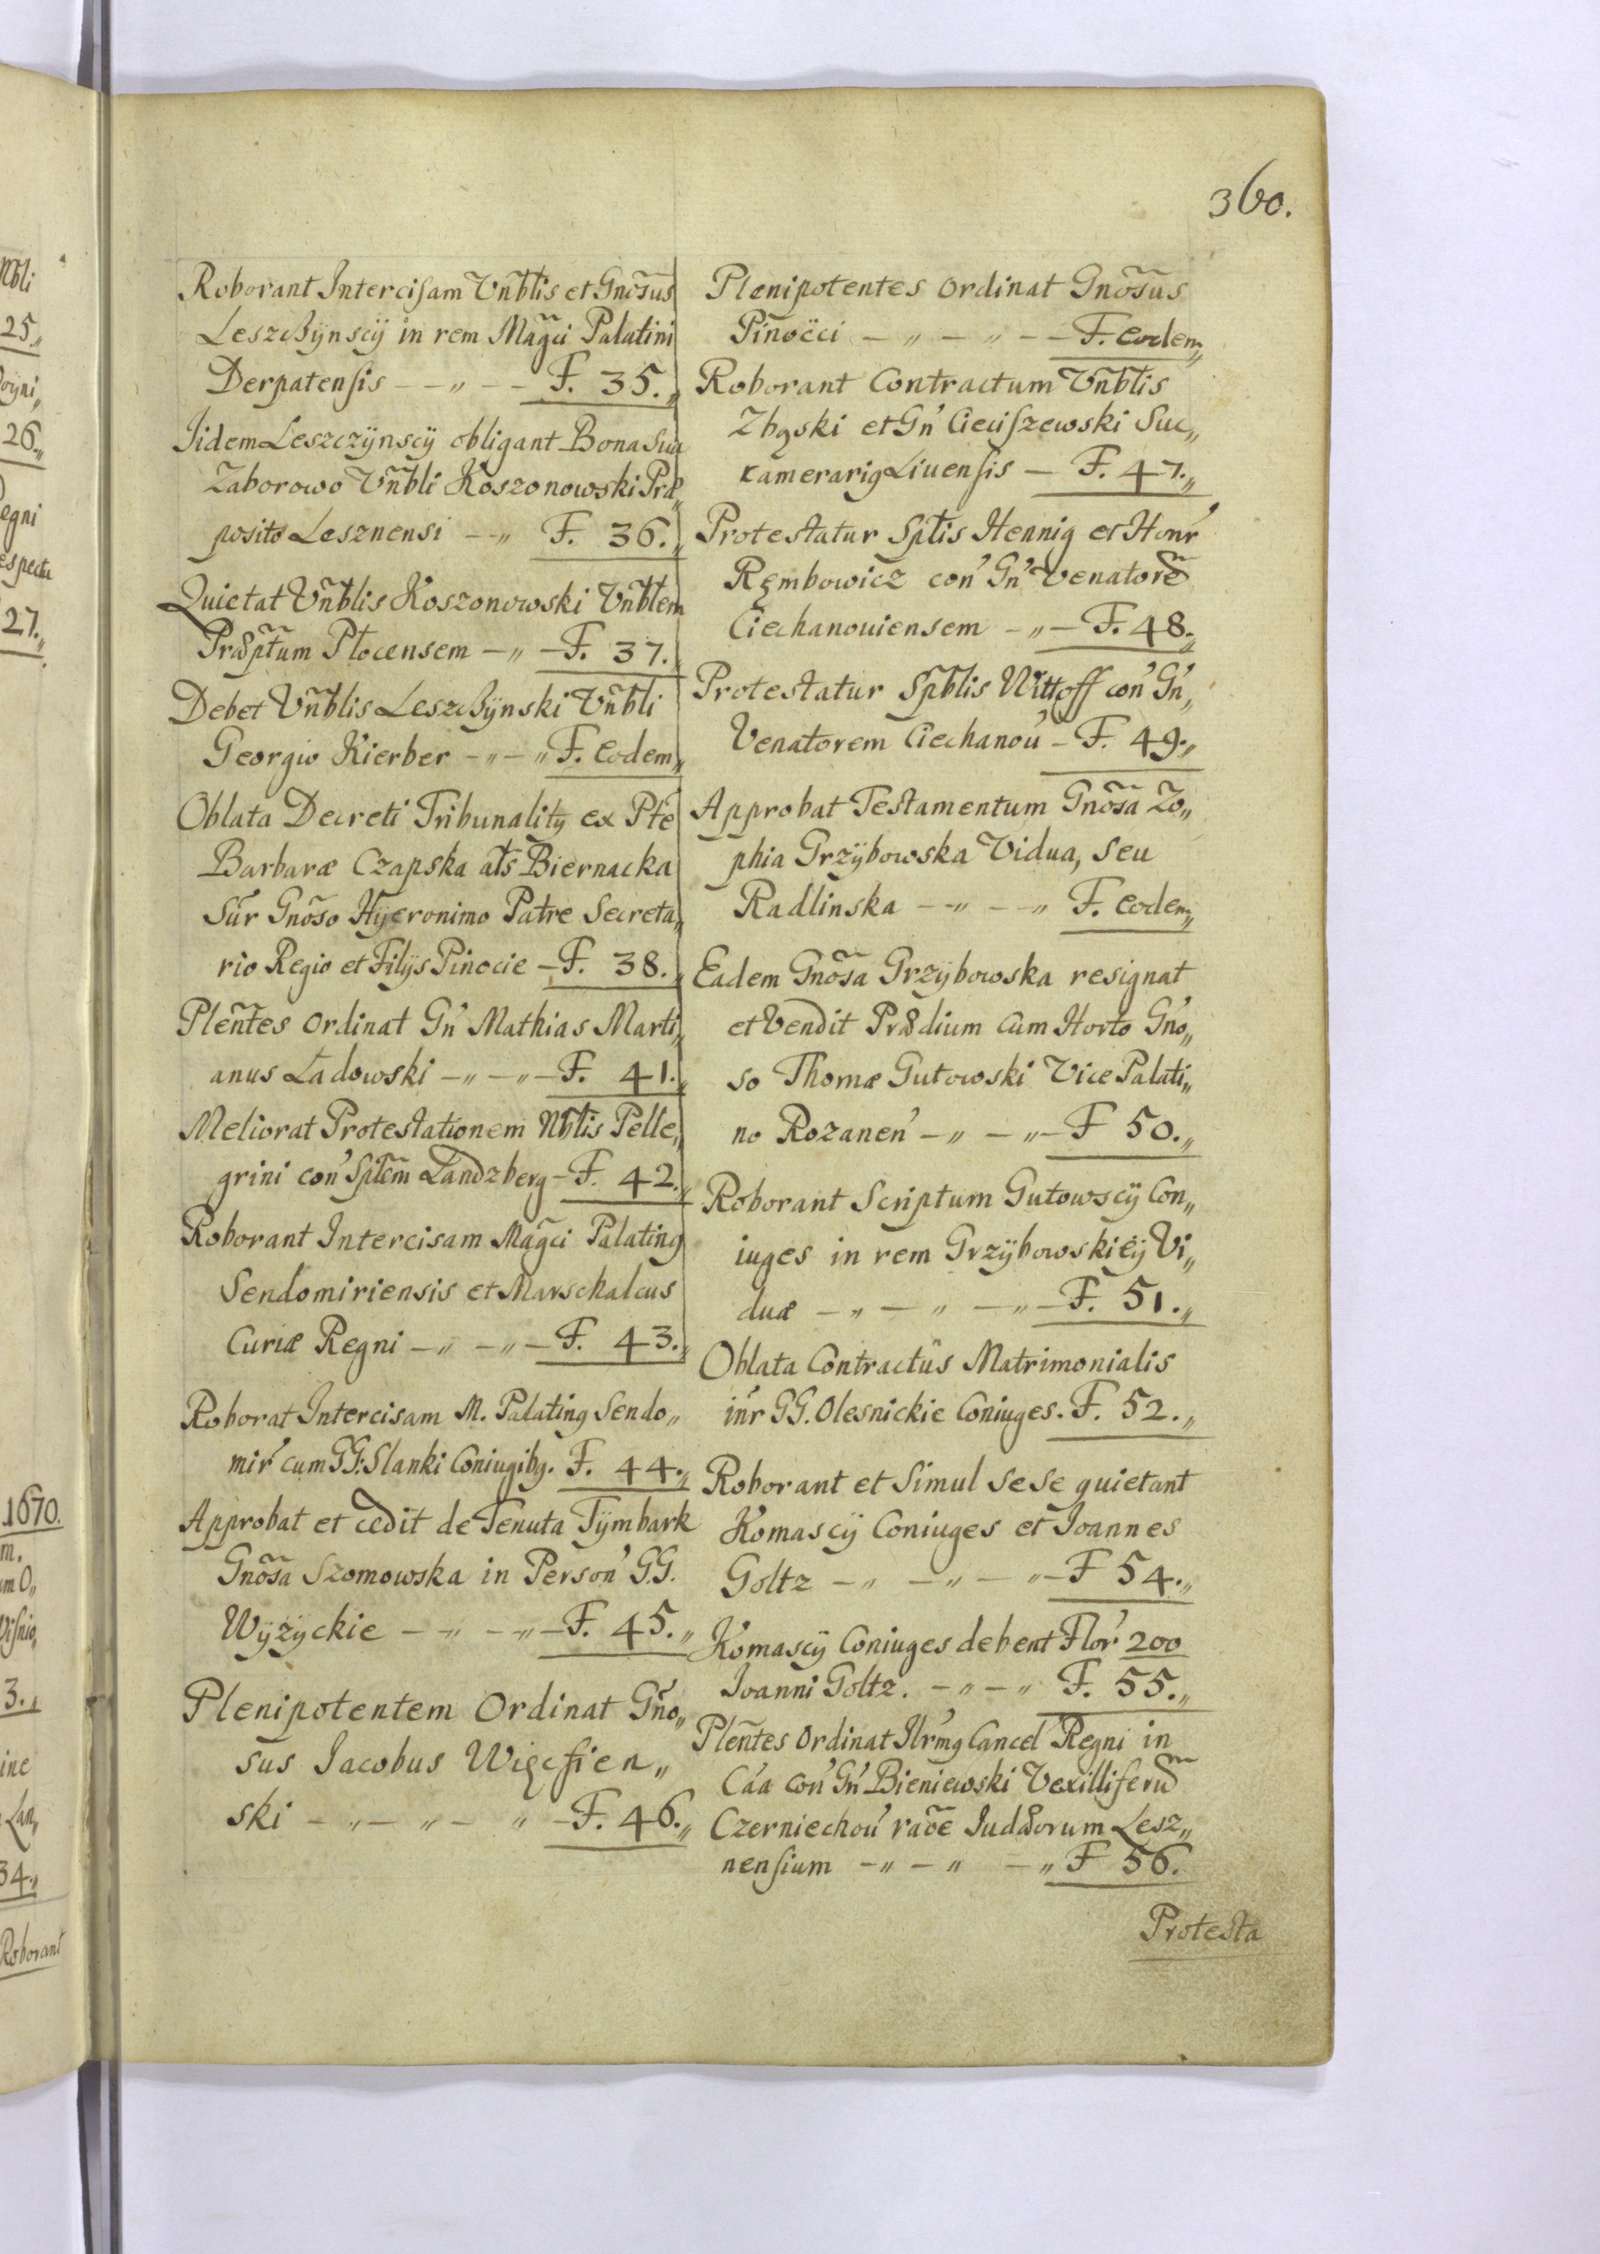 360.
Roborant Intercisam Vñblis et Gnõsus
Leszczÿnscÿ in rem Mãgci Palatini
Derpatensis — — „ — — F. 35.„
Iidem Leszczÿnscÿ obligant Bona Sua
Zaborowo Vñbli Koszonowski Præ„
posito Lesznensi — „ F. 36.„
Quietat Vñblis Koszonowski Vñblem
Præptũm Płocensem — „ — F. 37.„
Debet Vñblis Leszczÿnski Vñbli
Georgio Kierber — „ — „ F. Eodem„
Oblata Decreti Tribunalitꝯ ex Pte
Barbaræ Czapska als Biernacka
Súr Gnõso Hÿeronimo Patre Secreta„
rio Regio et Filÿs Pinocie — F. 38.„
Pleñtes ordinat Gn' Mathias Marti„
anus Ładowski — „ — „ — F. 41.„
Meliorat Protestationem Nblis Pelle„
grini con' Splẽm Landzberg — F. 42.„
Roborant Intercisam Mãgci Palatinꝯ
Sendomiriensis et Marschalcus
Curiæ Regni — „ — „ — F. 43.„
Roborat Intercisam M. Palatinꝯ Sendo„
mir' cum GG. Slanki Coniugibꝯ. F. 44.„
Approbat et cedit de Tenuta Tÿmbark
Gnõsa Szomowska in Person' G.G.
Wÿzÿckie — „ — „ — F. 45.„
Plenipotentem Ordinat Gño„
sus Iacobus Więcsien„
ski — „ — „ — „ — F. 46.„
Plenipotentes ordinat Gnõsus
Pinöcci — „ — „ — — F. eodem„
Roborant Contractum Vñblis
Zbąski et Gn' Cieciszewski Suc„
camerariꝯ Liuensis — F. 47.„
Protestatur Splis Hennig et Honr'
Rębowicz con' Gn' Venatorẽ
Ciechanouiensem — „ — F. 48.„
Protestatur Spblis Wittoff con' Gn'„
Venatorem Ciechanou' — F. 49.„
Approbat Testamentum Gnõsa Zo„
phia Grzÿbowska Vidua, seu
Radlinska — „ — — „ F. eodem„
Eadem Gnõsa Grzÿbowska resignat
et Vendit Prædium Cum Horto Gno'„
so Thomæ Gutowski Vice Palati„
no Rozanen' — „ — „ — F 50.„
Roborant Scriptum Gutowscÿ Con„
iuges in rem Grzÿbowskieÿ Vi„
duæ — „ — „ — „ — F. 51.„
Oblata Contractûs Matrimonialis
inr' GG. Olesnickie Coniuges. F. 52.„
Roborant et Simul sese quietant
Komascÿ Coniuges et Ioannes
Goltz — „ — „ — „ — F 54.„
Komascÿ Coniuges debent Flor' 200
Ioanni Goltz. — „ — „ F. 55.„
Plẽntes ordinat Ilrmꝯ Cancel' Regni in
Cãa con' Gn' Bieniewski Vexilliferũ
Czerniechou' raõe Iudæorum Lesz„
nensium — „ — „ — „ F 56.
Protesta
25„
26„
egni
27.„
1670.
m.
3.„
34.„
Roborant